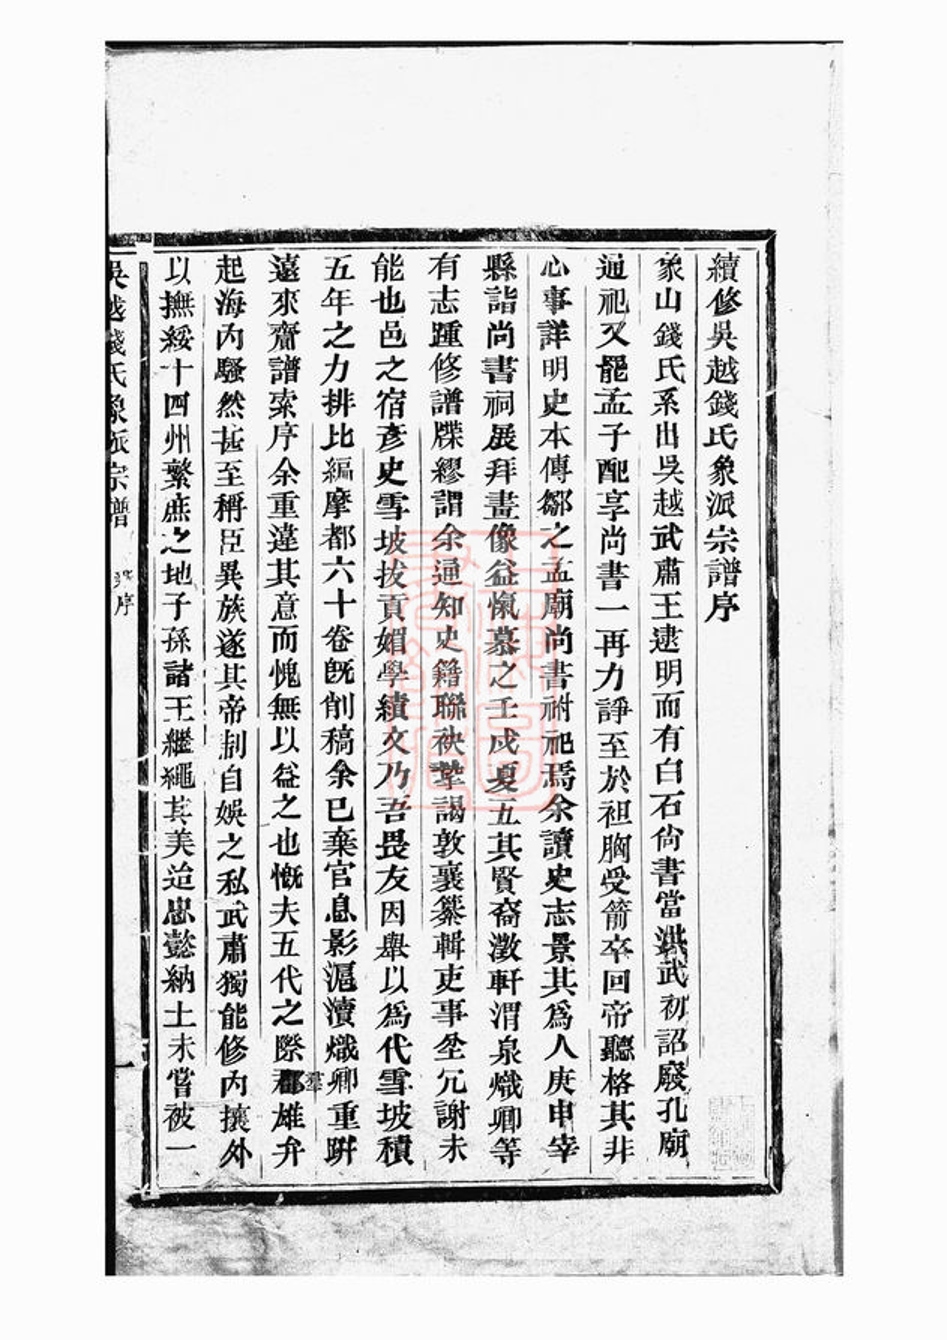 續修吳越錢氏象派宗譜序
象山錢氏系出吳越武肅王逮明而有白石尙書當洪武初詔廢孔廟
通祀又罷孟子配享尚書一再力諍至於袒胸受箭卒回帝聽格其非
心事詳明史本傳鄒之孟廟尚書祔祀焉余讀史志景其爲人庚申宰
縣詣尚書祠展拜畫像益愾慕之壬戌夏五其賢裔澂軒渭泉熾卿等
有志踵修譜牒繆謂余通知史籍聯袂摯謁敦襄纂輯吏事坌冗謝未
能也邑之宿彥史雪坡拔貢媚學績文乃吾畏友因舉以爲代雪坡積
五年之力排比編摩都六十卷旣削稿余已棄官息影滬瀆熾卿重趼
遠來齎譜索序余重違其意而愧無以益之也慨夫五代之際羣雄弁
起海內騷然甚至稱臣異族遂其帝制自娛之私武肅獨能修內攘外
以撫綏十四州繁庶之地子孫諸王繼繩其美迨忠懿納土未嘗被一
吳越錢氏象派宗譜 序 一